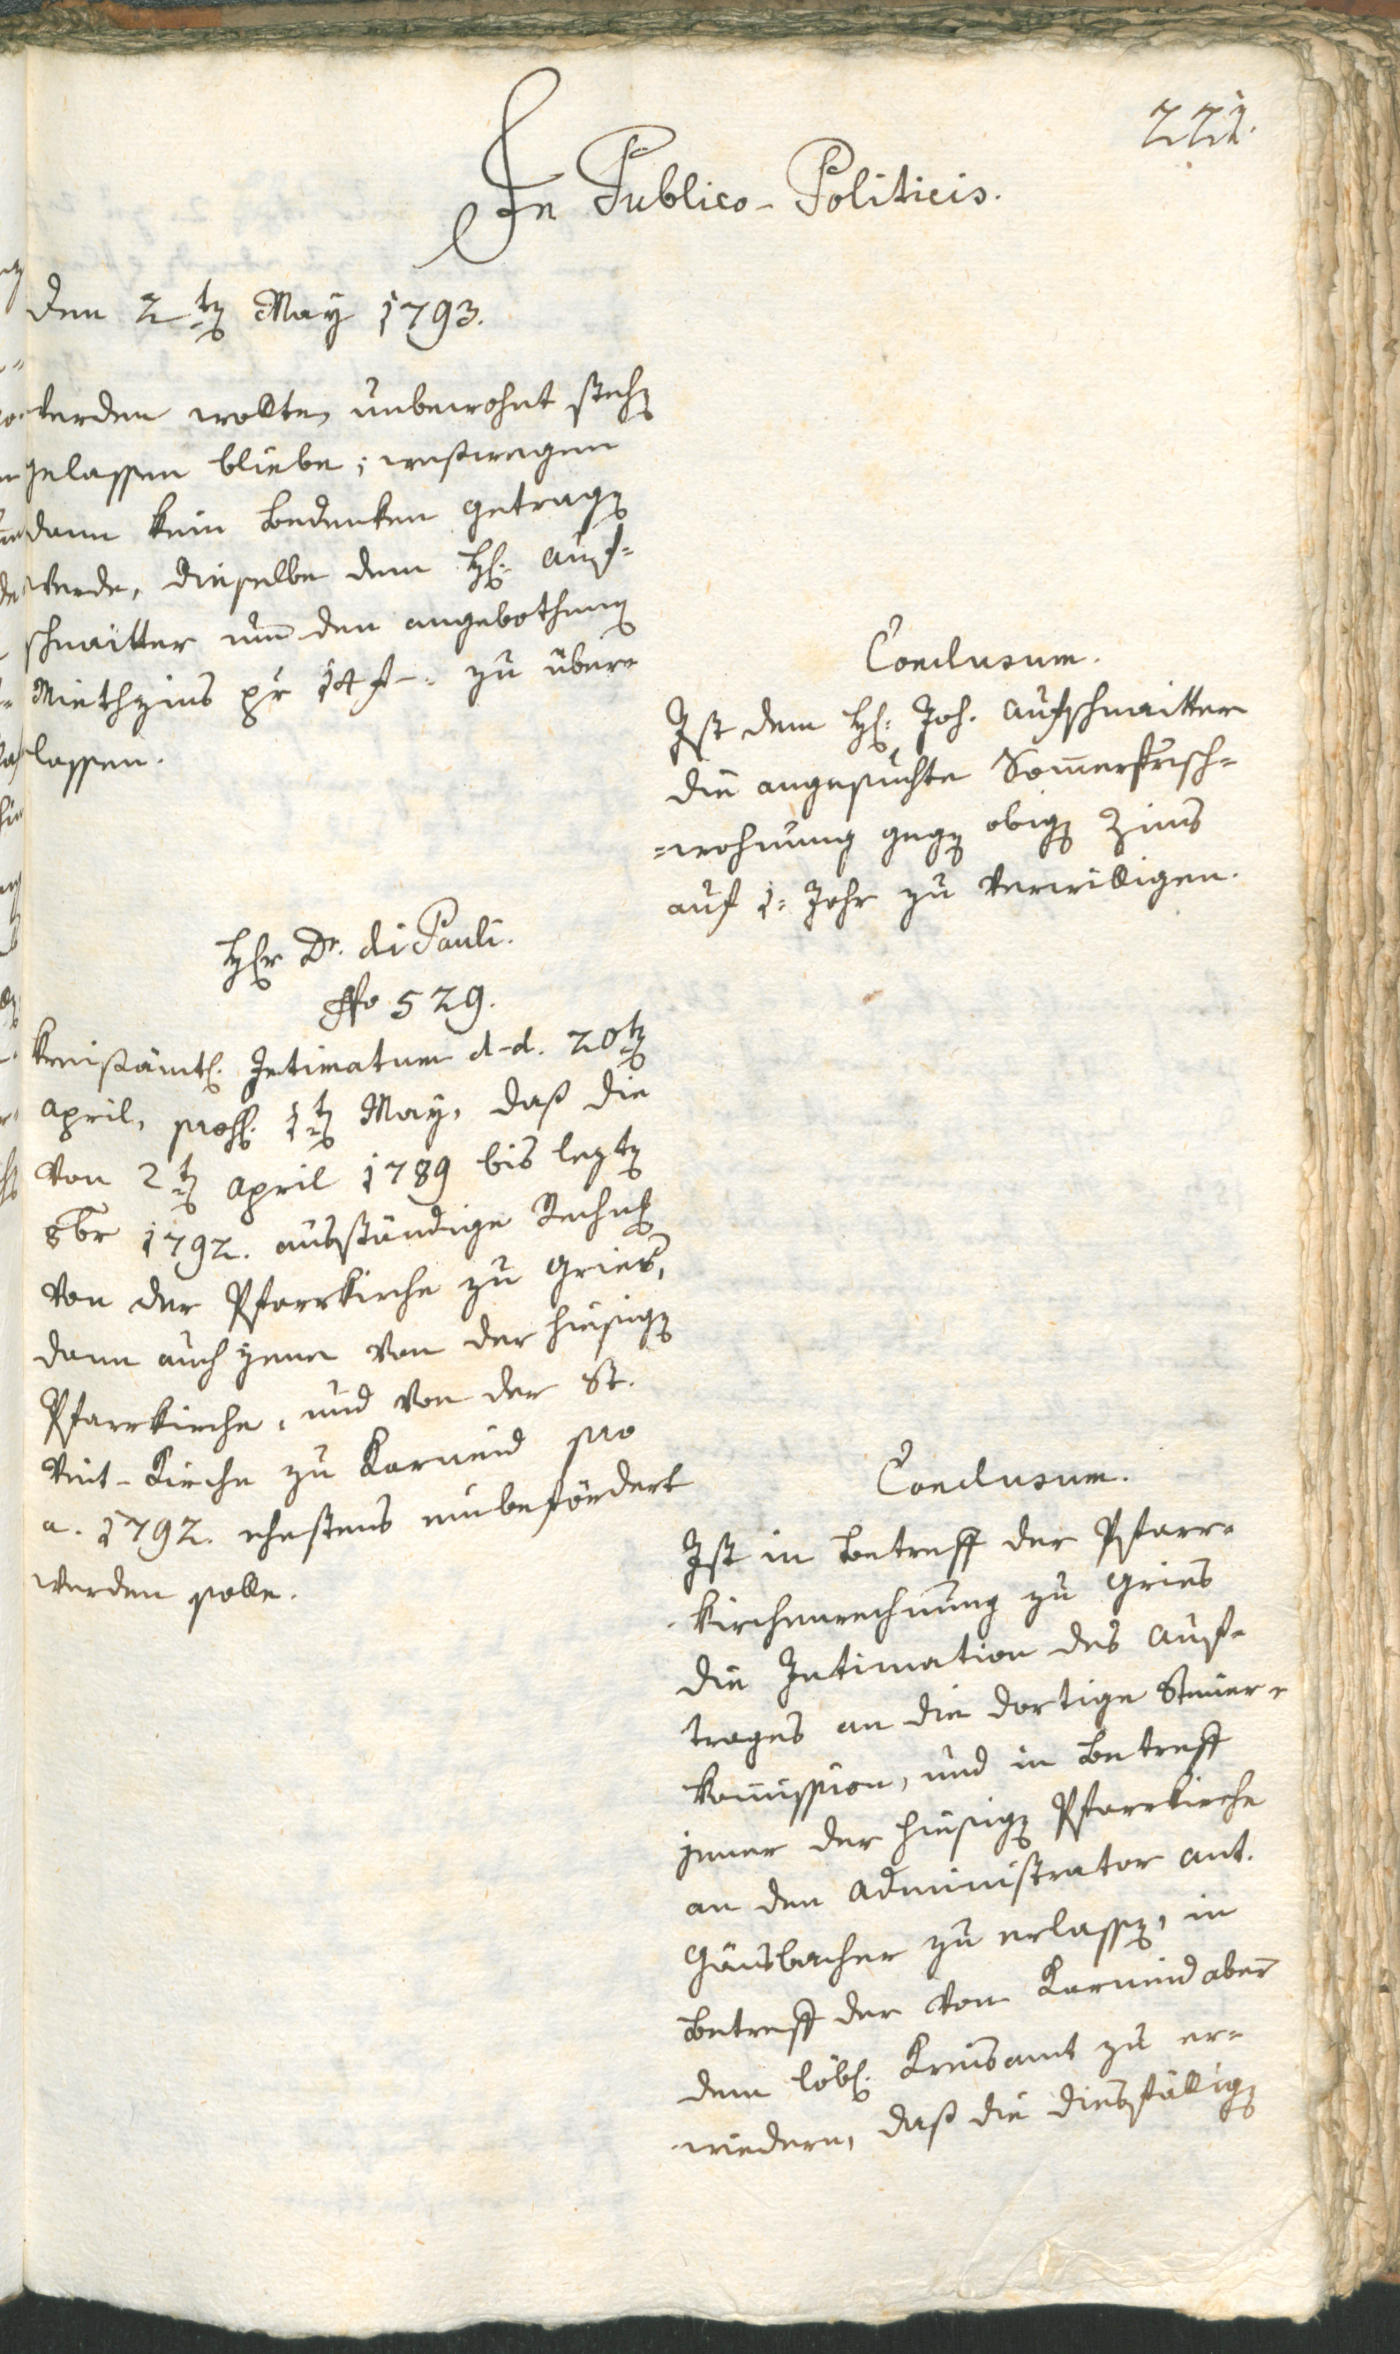 221.
In Publico-Politicis.
den 2ten May 1793.
werden wollte, unbewohnt stehen
gelassen bliebe; weßwegen
dann kein Bedenken getragen
werde, dieselbe dem H: Auf=
schnaitter um den angebothenen
Miethzins pr 14 f –: zu über=
lassen.
Conclusum.
Ist dem H: Joh. Aufschnaitter
die angesuchte Sommerfrisch=
=wohnung gegen obigen Zins
auf 1: Jahr zu verwilligen.
Herr Dr. di Pauli.
No 529.
Kreisämtl. Intimatum d-d. 20ten
April, 1ten May, daß die
von 2ten April 1789 bis lezten
8br 1792. ausständige Rechnung
von der Pfarrkirche zu Gries,
dann auch jene von der hiesigen
Pfarrkirche, und von der St.
Veit-Kirche zu Karneid pro
a. 1792. ehestens einbefördert
werden solle.
Conclusum.
Ist in Betreff der Pfarr=
kirchenrechnung zu Gries
die Intimation des Auf=
trages an die dortige Steuer=
kommission, und in Betreff
jener der hiesigen Pfarrkirche
an den Administrator Ant.
Gänsbacher zu erlassen, in
Betreff der von Karneid aber
dem löbl. Kreisamt zu er=
wiedern, daß die diesfällige